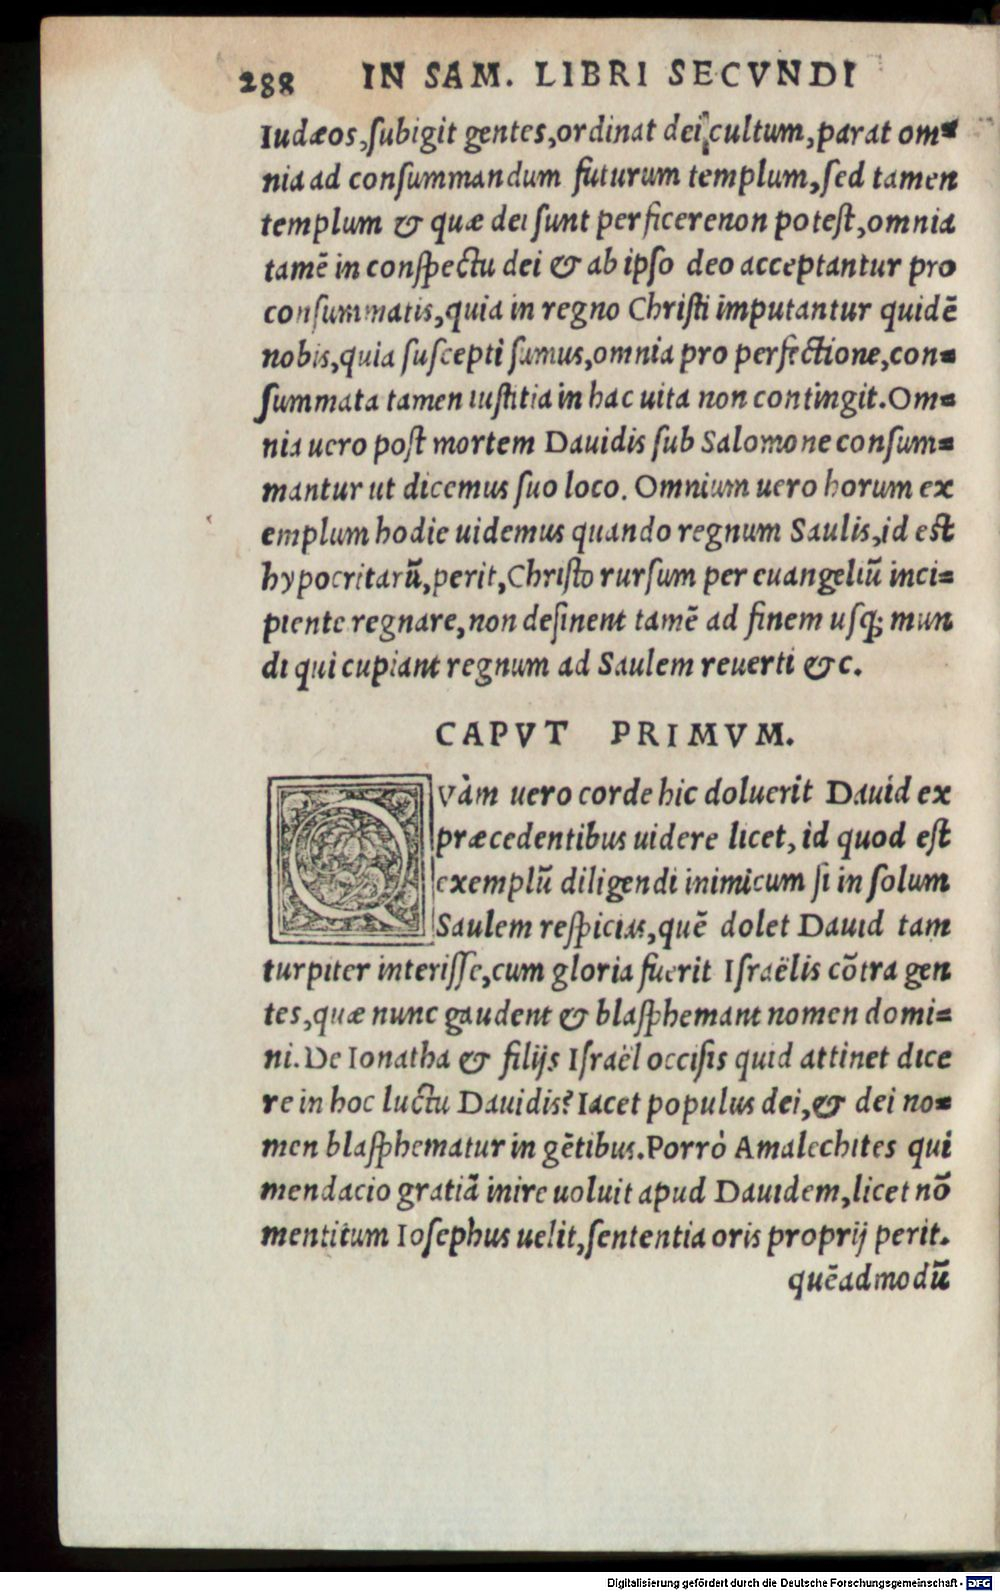 288 IN SAM. LIBRI SECVNDI
Iudæos, ſubigit gentes, ordinat dei cultum, parat om=
nia ad conſummandum futurum templum, ſed tamen
templum & quæ dei ſunt perficere non poteſt, omnia
tamē in conſpectu dei & ab ipſo deo acceptantur pro
conſummatis, quia in regno Chriſti imputantur quidē
nobis, quia ſuſcepti ſumus, omnia pro perfectione, con=
ſummata tamen iuſtitia in hac uita non contingit. Om=
nia uero poſt mortem Dauidis ſub Salomone conſum=
mantur ut dicemus ſuo loco. Omnium uero horum ex
emplum hodie uidemus quando regnum Saulis, id eſt
hypocritarū, perit, Chriſto rurſum per euangeliū inci=
piente regnare, non deſinent tamē ad finem uſq; mun
di qui cupiant regnum ad Saulem reuerti &c.
CAPVT PRIMVM.
QVàm uero corde hic doluerit Dauid ex
præcedentibus uidere licet, id quod eſt
exemplū diligendi inimicum ſi in ſolum
Saulem reſpicias, quē dolet Dauid tam
turpiter interiſſe, cum gloria fuerit Iſraëlis cōtra gen
tes, quæ nunc gaudent & blaſphemant nomen domi=
ni. De Ionatha & filijs Iſraël occiſis quid attinet dice
re in hoc luctu Dauidis? Iacet populus dei, & dei no=
men blaſphematur in gētibus. Porrò Amalechites qui
mendacio gratiā inire uoluit apud Dauidem, licet nō
mentitum Ioſephus uelit, ſententia oris proprij perit.
quēadmodū
Digitalisierung gefördert durch die Deutsche Forschungsgemeinschaft - DFG